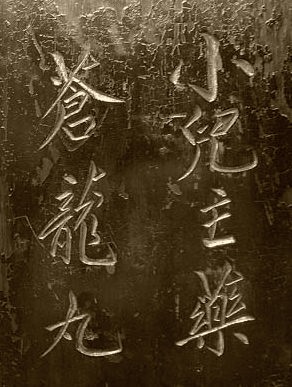 小兒主藥
蒼龍丸